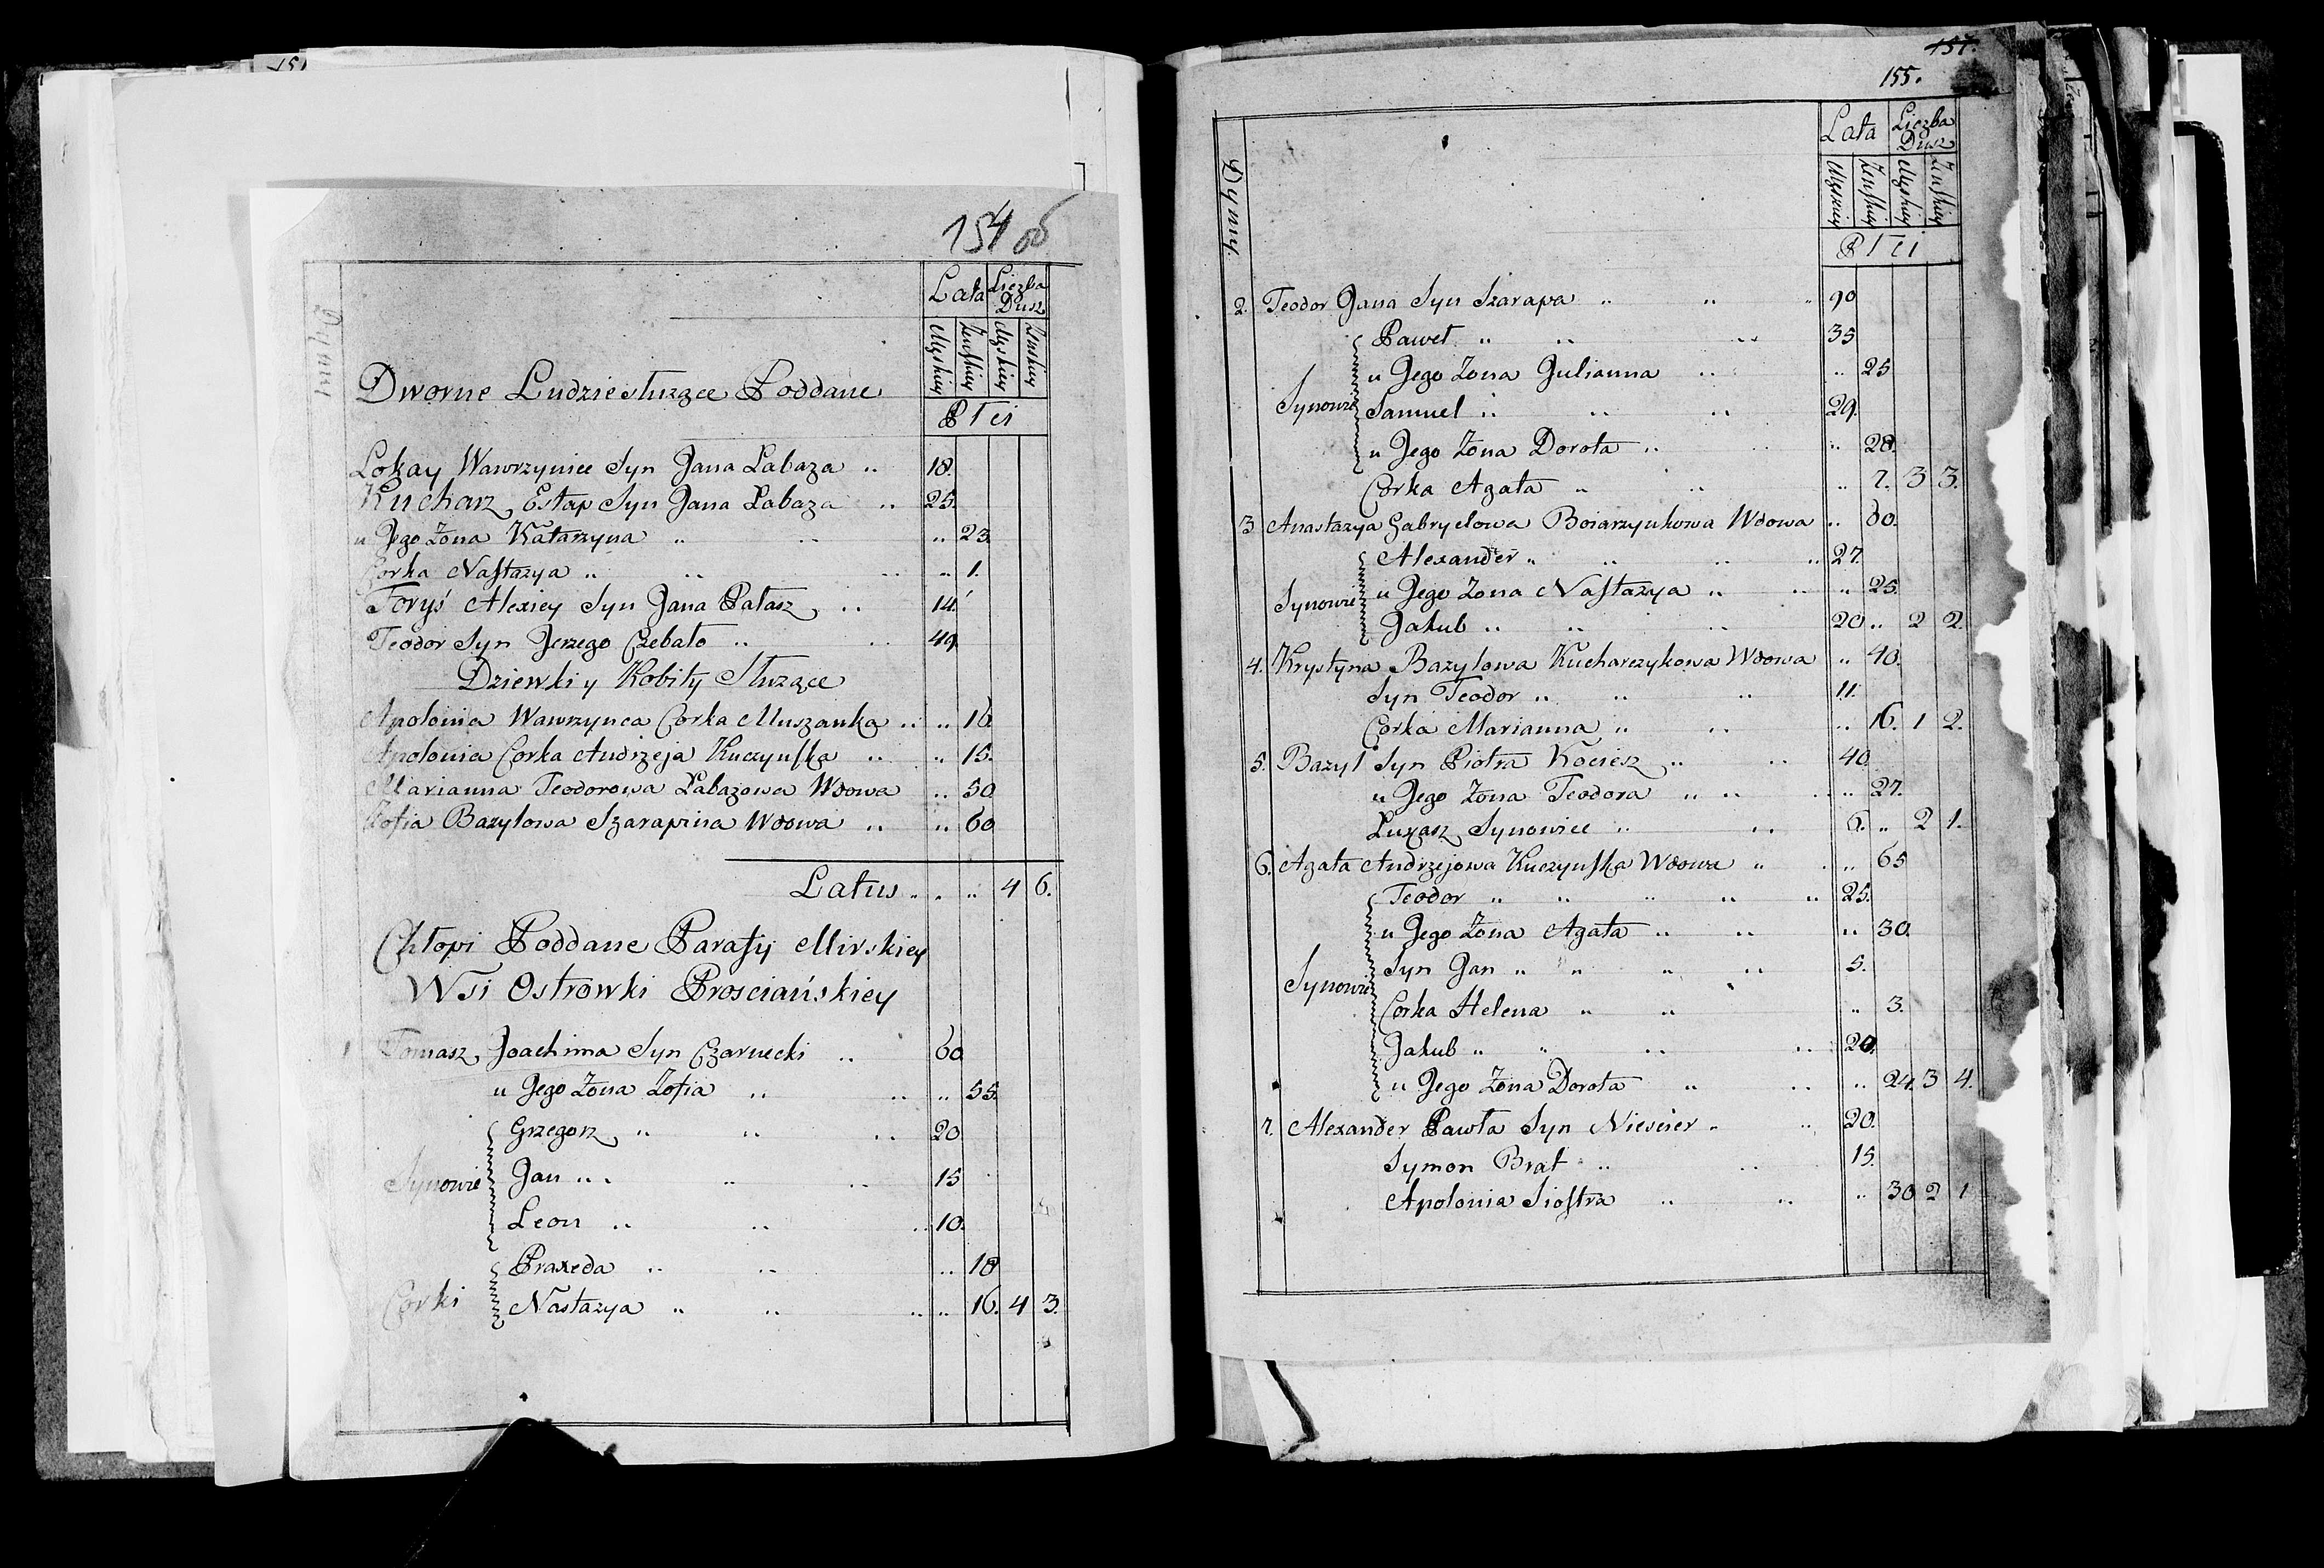 154 об
Dymy
Lata Liczba Dusz
Męskiey Żeńskiey Męskiey Żeńskiey
Płci
Dworne Ludzie służące Poddane
Lokay Wawrzyniec Syn Jana Łabaza .. 18.
Kucharz Estap Syn Jana Łabaza .. 25.
u Jego Żona Katarzyna .. .. .. 23.
Corka Nastazya .. .. .. .. 1.
Foryś Alexiey Syn Jana Pałasz .. 14.
Teodor Syn Jerzego Czebato .. .. 49.
Dziewki y Kobity Służące
Apolonia Wawrzynca Corka Muszanka .. .. 16.
Apolonia Corka Andrzeja Kuczynska .. .. 15.
Marianna Teodorowa Łabazowa Wdowa .. 50.
Zofia Bazylowa Szarapina Wdowa .. .. 60
Latus .. .. .. 4 6.
Chłopi Poddane Parafij Mirskiey
Wsi Ostrowki Prosciańskiey
1 Tomasz Joachima Syn Czarnecki .. 60.
u Jego Żona Zofia .. .. .. 55.
Grzegorz .. .. .. 20.
Synowie Jan .. .. .. 15
Leon .. .. .. 10.
Praxeda .. .. .. 18
Corki Nastazya .. .. .. .. 16. 4 3.
157.
155.
Dymy.
Lata Liczba Dusz
Męskiey Żeńskiey Męskiey Żeńskiey
Płci
2. Teodor Jana Syn Szarapa .. .. .. 90
Paweł .. .. .. 35
u Jego Żona Julianna .. .. 25
Synowie Samuel .. .. .. 29.
u Jego Żona Dorota .. .. 28.
Corka Agata .. .. .. 7. 3 3.
3 Anastazya Gabryelowa Boiarzynkowa Wdowa .. 60.
Alexander .. .. .. .. 27.
Synowie u Jego Żona Nastazya .. .. .. 25.
Jakub .. .. .. 20 .. 2 2.
4. Krystyna Bazylowa Kucharczykowa Wdowa .. 40.
Syn Teodor .. .. .. 11.
Corka Marianna .. .. .. 16. 1 2.
5. Bazyl Syn Piotra Kociesz .. .. 40.
u Jego Żona Teodora .. .. .. 27.
Łukasz Synowiec .. .. 6. .. 2 1.
6. Agata Andrzejowa Kuczynska Wdowa .. .. 65
Teodor .. .. .. .. .. 25.
u Jego Żona Agata .. .. .. 30.
Syn Jan .. .. .. .. 5.
Synowie Corka Helena .. .. .. 3.
Jakub .. .. .. .. 20.
u Jego Żona Dorota .. .. .. 24. 3 4.
7. Alexander Pawła Syn Niescier .. .. 20.
Symon Brat .. .. 15.
Apolonia Siostra .. .. .. 30 2 1